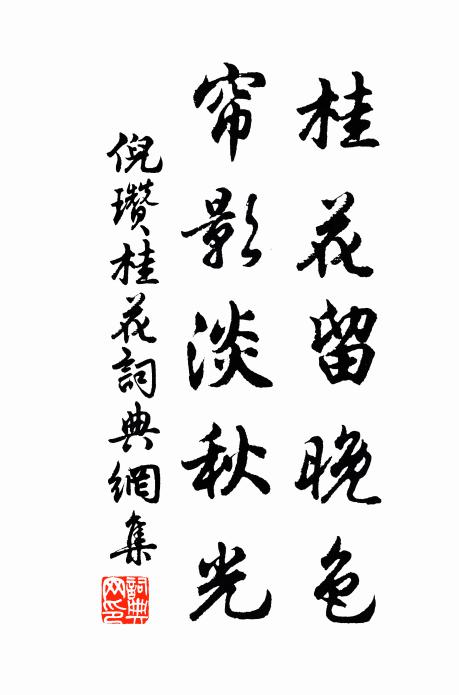 桂花留晚色
帘影淡秋光
倪瓚桂花詞典網集
詞典網印